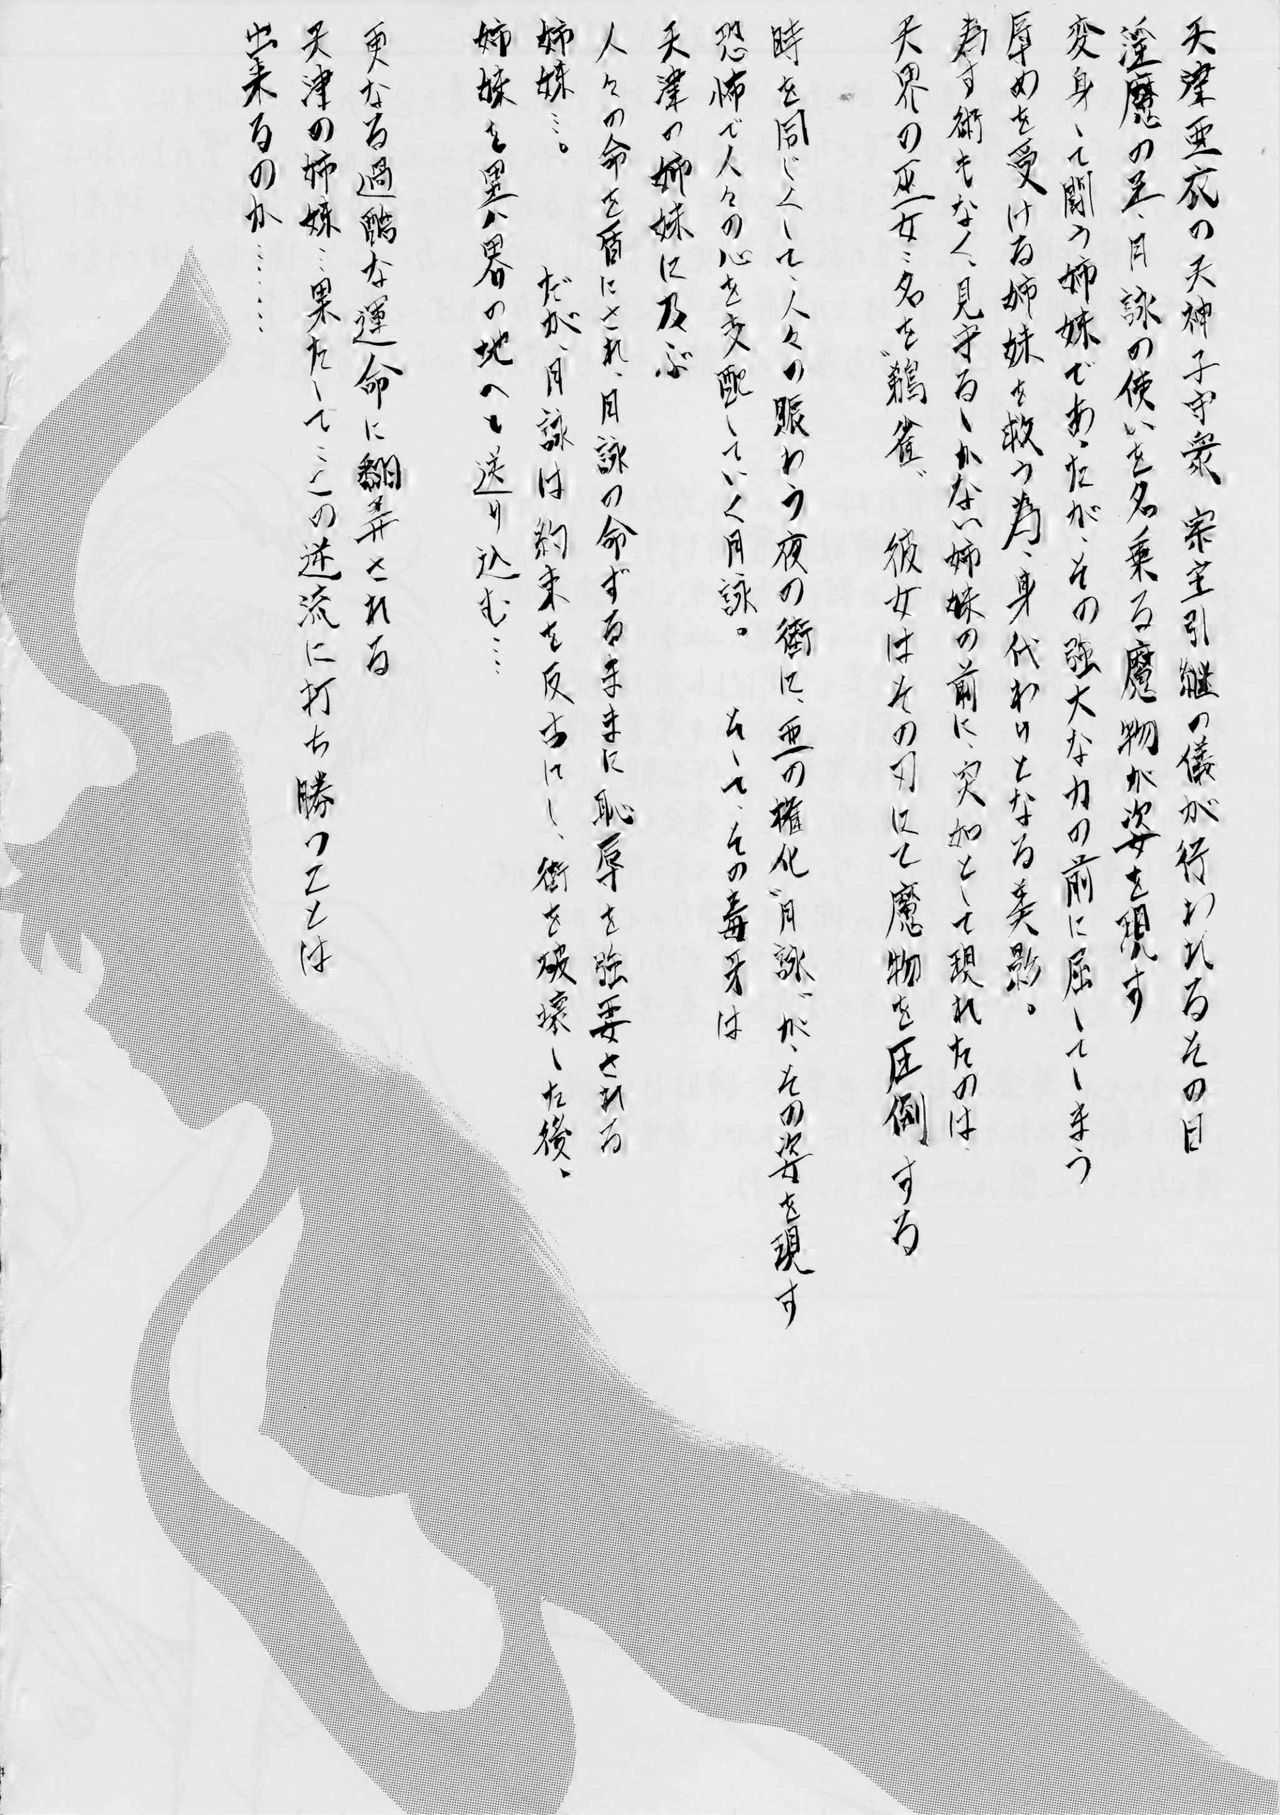 天津亜衣の天神子守衆 宗主引継の儀が行われるその日
淫魔の王、月詠の使いを名乗る魔物が姿を現す
変身して闘う姉妹であったが、その強大な力の前に屈してしまう
辱めを受ける姉妹を救う為、身代わりとなる美影。
為す術もなく、見守るしかない姉妹の前に、突如として現れたのは
天界の巫女…名を〝鶺雀〟 彼女はその刃にて魔物を圧倒する
時を同じくして、人々の賑わう夜の街に、悪の権化〝月詠〟が、その姿を現す
恐怖で人々の心を支配していく月詠。 そして、その毒牙は
天津の姉妹に及ぶ
人々の命を盾にされ、月詠の命ずるままに恥辱を強要される
姉妹…。 だが、月詠は約束を反古にし、街を破壊した後、
姉妹を黒八界の地へと送り込む…
更なる過酷な運命に翻弄される
天津の姉妹…果たして…この逆流に打ち勝つことは
出来るのか………